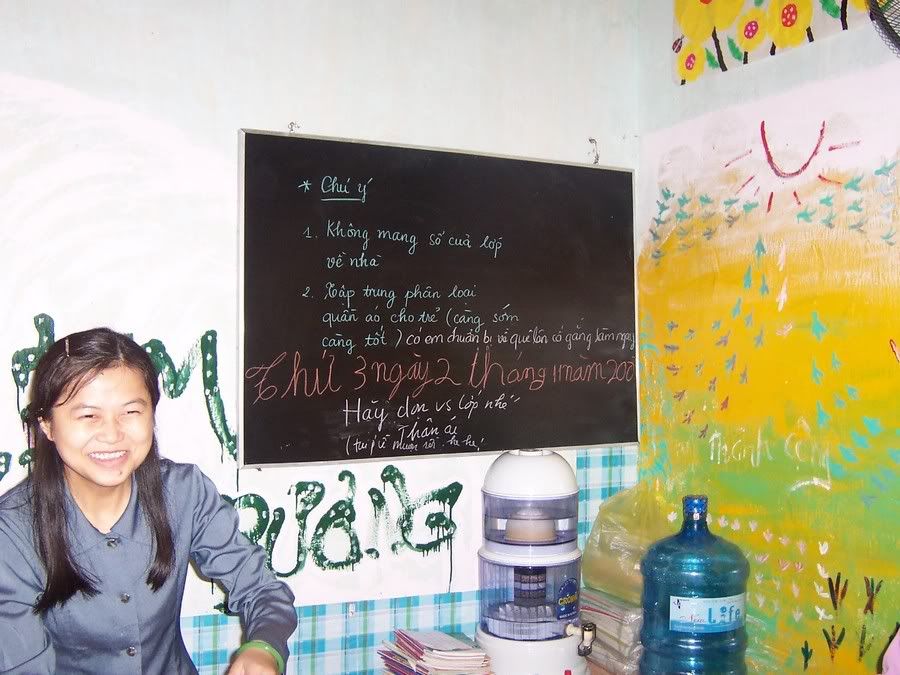 * Chú ý
1. Không mang số của lớp
về nhà
2. Tập trung phân loại
quần áo cho trẻ (càng sớm
càng tốt) có em chuẩn bị về quê lên cố gắng làm ngay
Thứ 3 ngày 2 tháng 11 năm 200
Hãy dọn vs lớp nhé
Thân ái
hi hi
THÀNH CÔNG
CROWN
Life